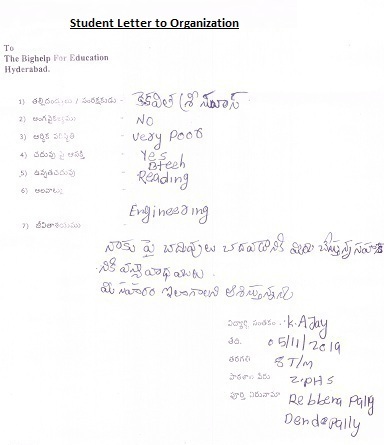 Student Letter to Organization
To
The Bighelp For Education
Hyderabad.
1) తల్లిదండ్రులు / సంరక్షకుడు - శ్రీనివాస్
2) అంగవైకల్యము - NO
3) ఆర్థిక పరిస్థితి - very poor
4) చదువు పై ఆసక్తి - Yes
5) ఉన్నతచదువు - Btech
6) అలవాట్లు - Reading
Engineering
7) జీవితాశయము -
నాకు పై చదువులు చదవడానికి మీరు చేస్తున్న
ధన్యవాదములు.
మీ సహకారం ఇలాగే ఆశిస్తున్నాను
విద్యార్థి సంతకం : K. AJay
తేది. 05/11/2019
తరగతి 8 T/m
పాఠశాల పేరు Z.P.H.S
పూర్తి చిరునామా Rebbena Pally
Dendepally